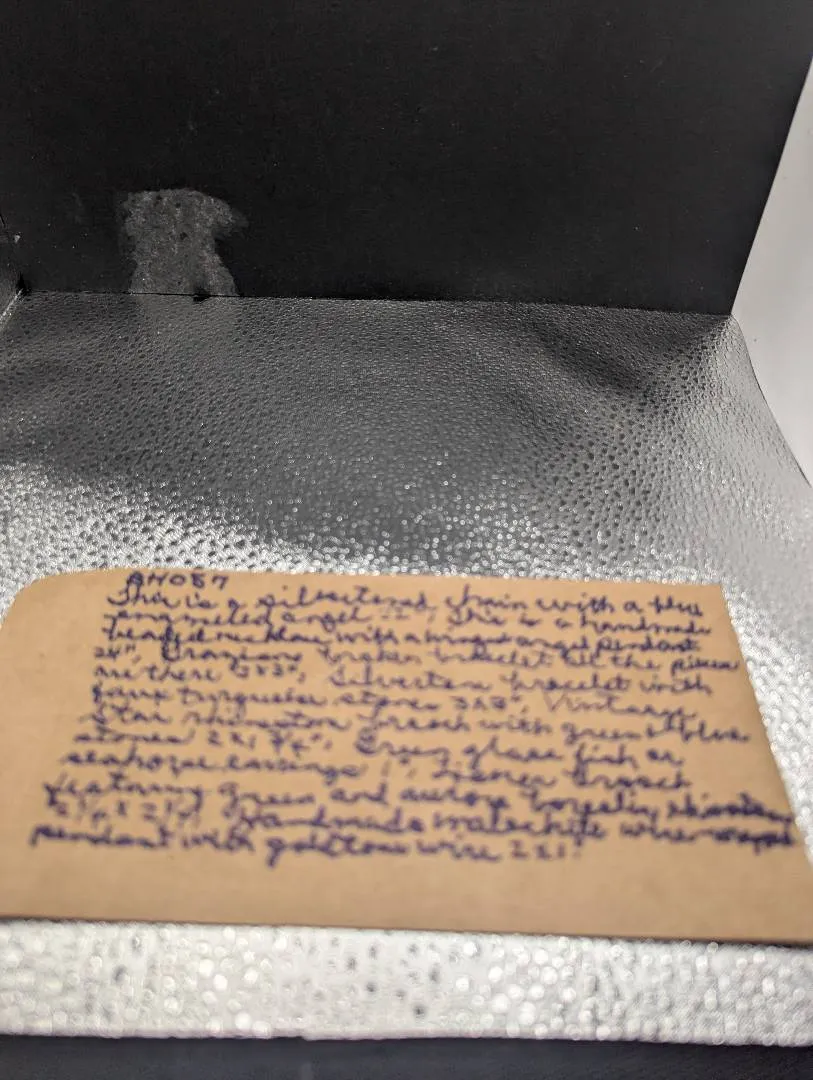 AH087
This is a silvertoned chain with a blue
enameled angel 12", This is a handmade
beaded necklace with a winged angel pendant
24", broken bracelet all the pieces
are there 3x3", Silvertone bracelet with
faux turquoise stones 3x3", Vintage
Star rhinestone brooch with green & blue
stones 2x1 3/4", Green glass fish or
seahorse earrings 1", brooch
featuring green and aurora borealis rhinestones
Handmade malachite wire wrapped
pendant with goldtone wire 2x1"